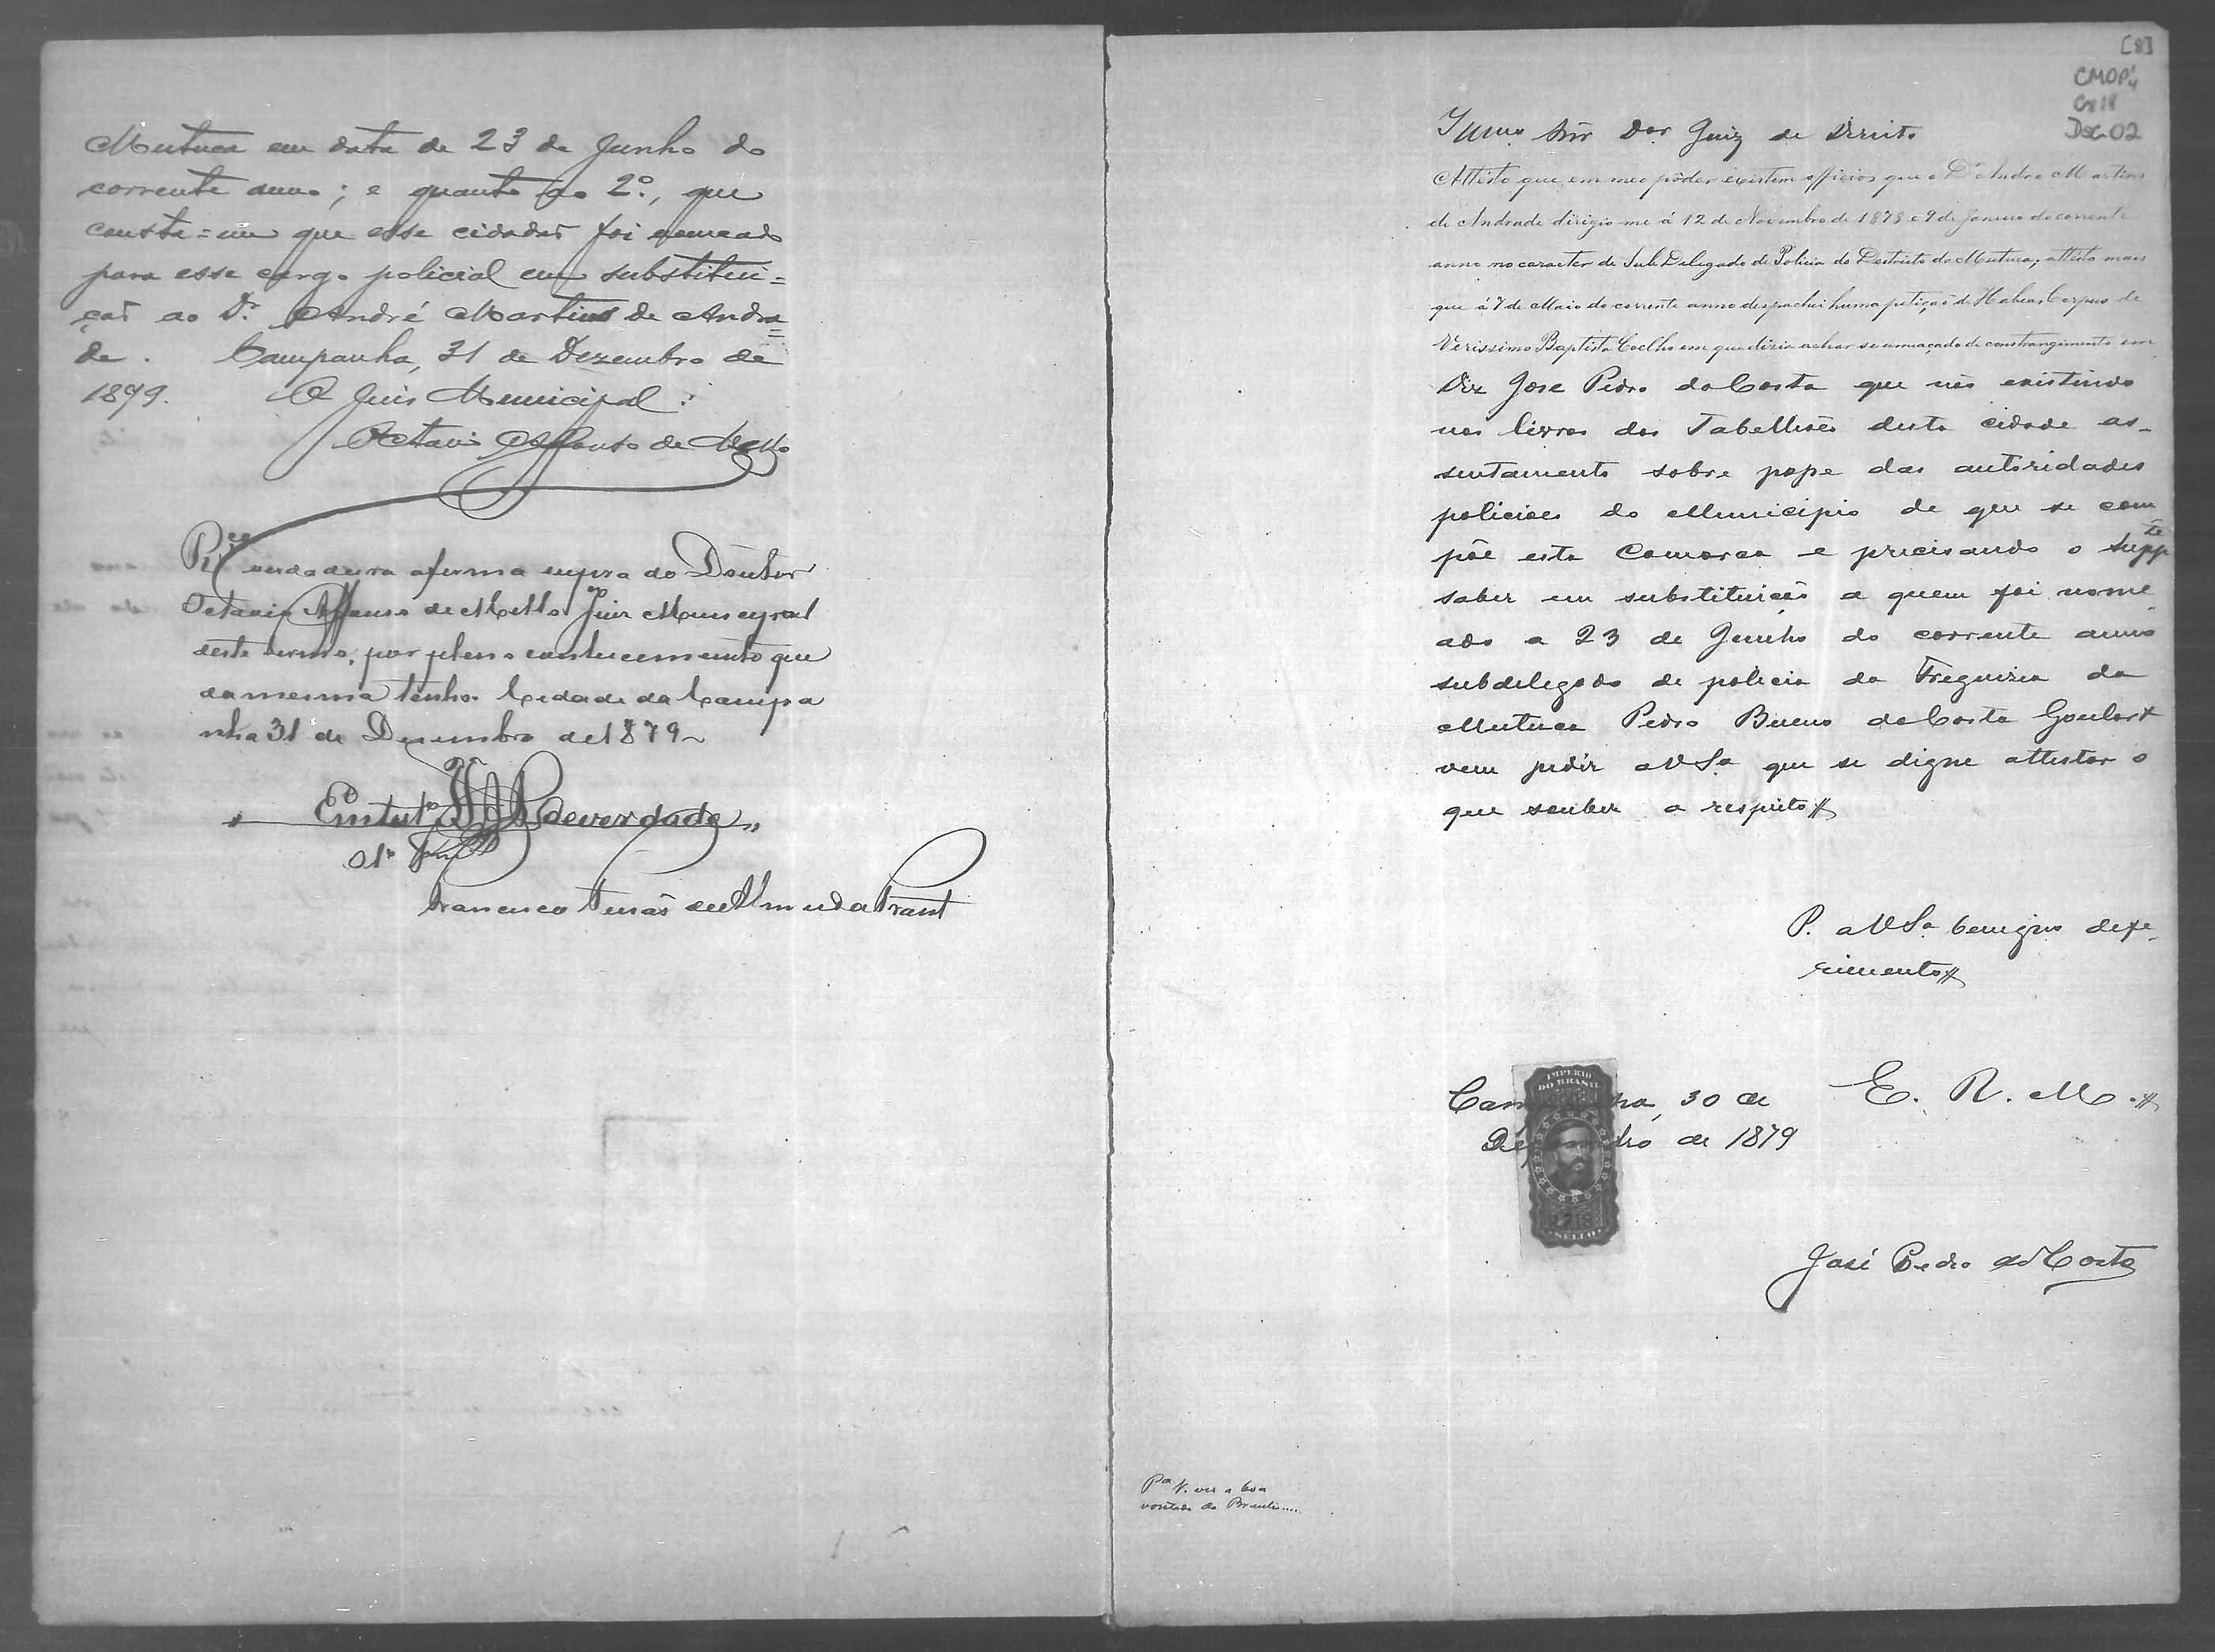 Mutuca em data de 23 de Junho do
corrente anno; e quanto ao 2º, que
consta=me que esse cidadaõ foi nomeado
para esse cargo policial em substitui=
çaõ ao Dr. André Martins de Andra=
de. Campanha, 31 de Dezembro de
1879. O Juis Municipal:
Octavio Affonso de Mello
Rec verdadeira a firma supra do Doutor
Octavio Affonso de Mello Juiz Municipal
deste termo, por pleno conhecimento que
da mesma tenho. Cidade da Campa
nha 31 de Desembro de 1879
Em testº de verdade
Francisco de Almeida
[8]
CMOP
Cx 18
Doc 02
Illmo Snr Dor Juiz de Direito
Attesto que em meo poder existem officios que o Dr Andre Martins
de Andrade dirigio me á 12 de Novembro de 1878 e 9 de Janeiro do corrente
anno no caracter de Sub Delegado de Policia do Destricto da Mutuca; attesto mais
que á 7 de Maio do corrente anno despachei huma petiçaõ de Habeas Corpus de
Verissimo Baptista Coelho em que dizia achar se ameaçado de constrangimento em
Diz José Pedro da Costa que não existindo
nos livros dos Tabelliães desta cidade as-
sentamento sobre posse das autoridades
policiaes do Municipio de que se com
põe esta Comarca e precisando o Suppte
saber em substituição a quem foi nome
ado a 23 de Junho do corrente anno
subdelegado de policia da Freguezia da
Mutuca Pedro Bueno da Costa Goulart
vem pedir a VSa que se digne attestar o
que souber a respeito
P. a VSa benigno defe-
rimento
Campanha, 30 de
Dezembro de 1879
E. R. M.
IMPERIO
DO BRASIL
SELLO
José Pedro da Costa
Pa V. ver a boa
vontade do Braulio....